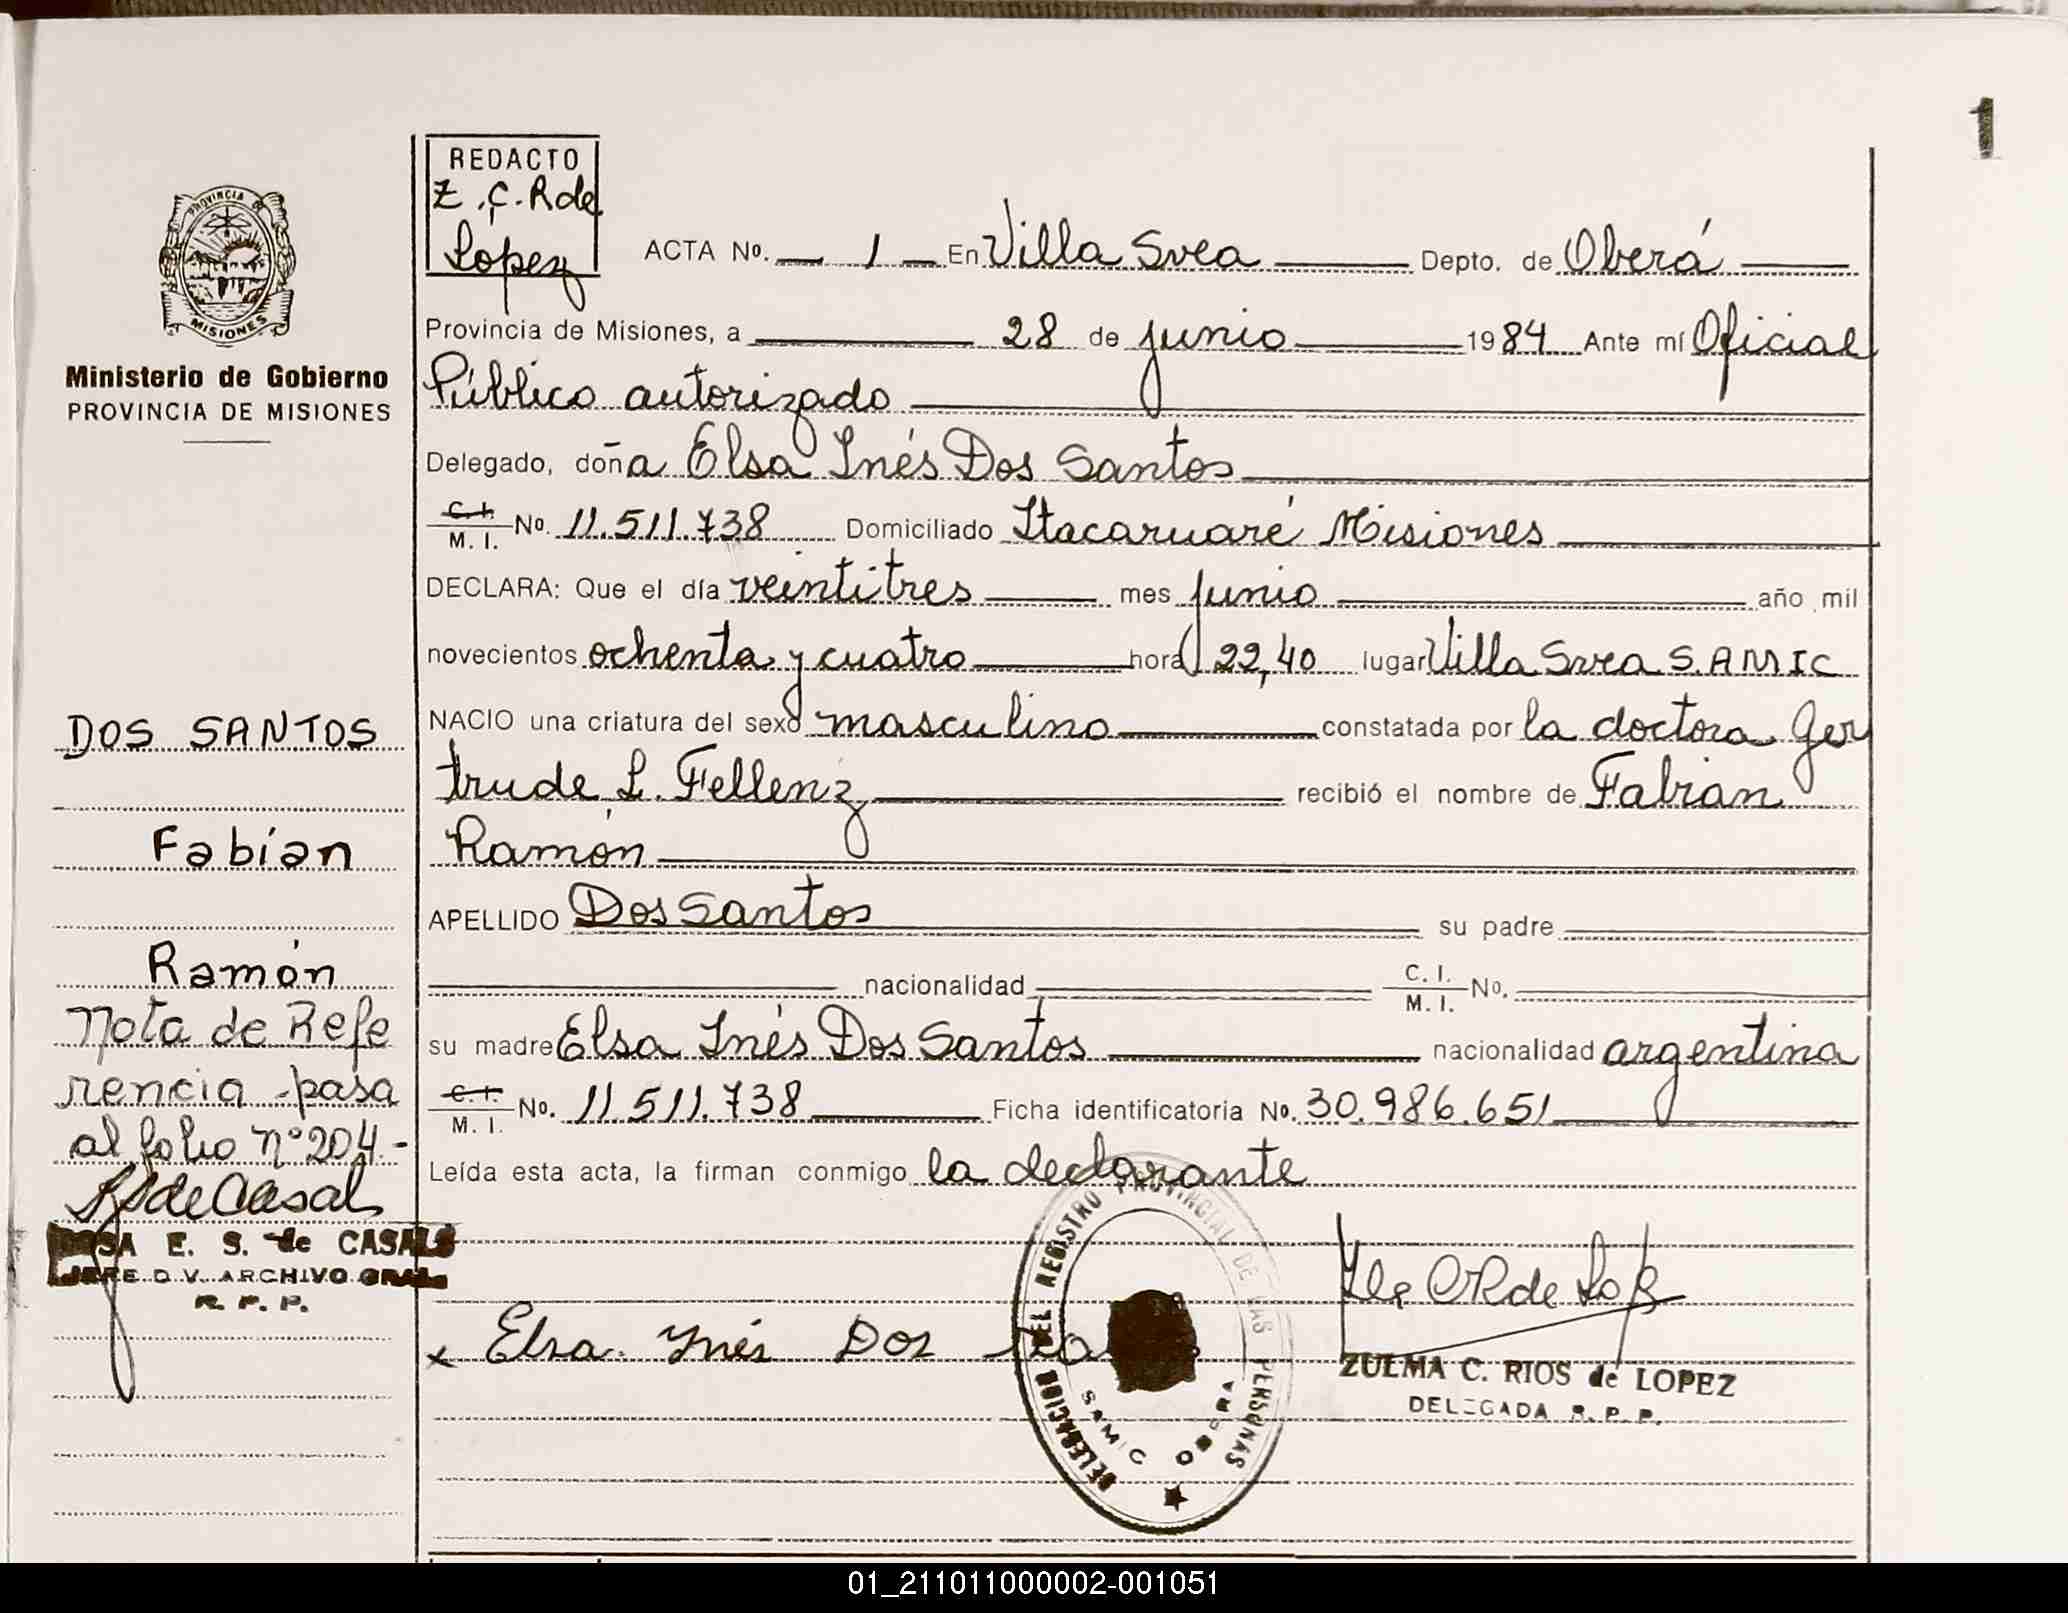 1
REDACTO
Z.C.R de
López
PROVINCIA DE
MISIONES
Ministerio de Gobierno
PROVINCIA DE MISIONES
ACTA No. — 1 — En Villa Svea Depto. de Oberá
Provincia de Misiones, a 28 de junio 1984 Ante mí Oficial
Público autorizado
Delegado, doña Elsa Inés Dos Santos
C. I. M. I. No. 11.511.738 Domiciliado Itacaruaré Misiones
DECLARA: Que el día veintitres mes junio año mil
novecientos ochenta y cuatro hora 22,40 lugar Villa Svea S.AMIC
NACIO una criatura del sexo masculino constatada por la doctora Ger
trude L. Fellenz recibió el nombre de Fabián
Ramón
APELLIDO Dos Santos su padre
nacionalidad C. I. M. I. No.
su madre Elsa Inés Dos Santos nacionalidad argentina
C. I. M. I. No. 11.511.738 Ficha identificatoria No. 30.986.651
Leída esta acta, la firman conmigo la declarante
x Elsa Inés Dos
DELEGACION DEL REGISTRO PROVINCIAL DE LAS PERSONAS
SAMIC OBERA
ZULMA C. RIOS de LOPEZ
DELEGADA R. P. P.
DOS SANTOS
Fabián
Ramón
Nota de Refe
rencia pasa
al folio Nº 204.-
E. S. de CASALS
JEFE DIV. ARCHIVO GRAL.
R. P. P.
01_211011000002-001051